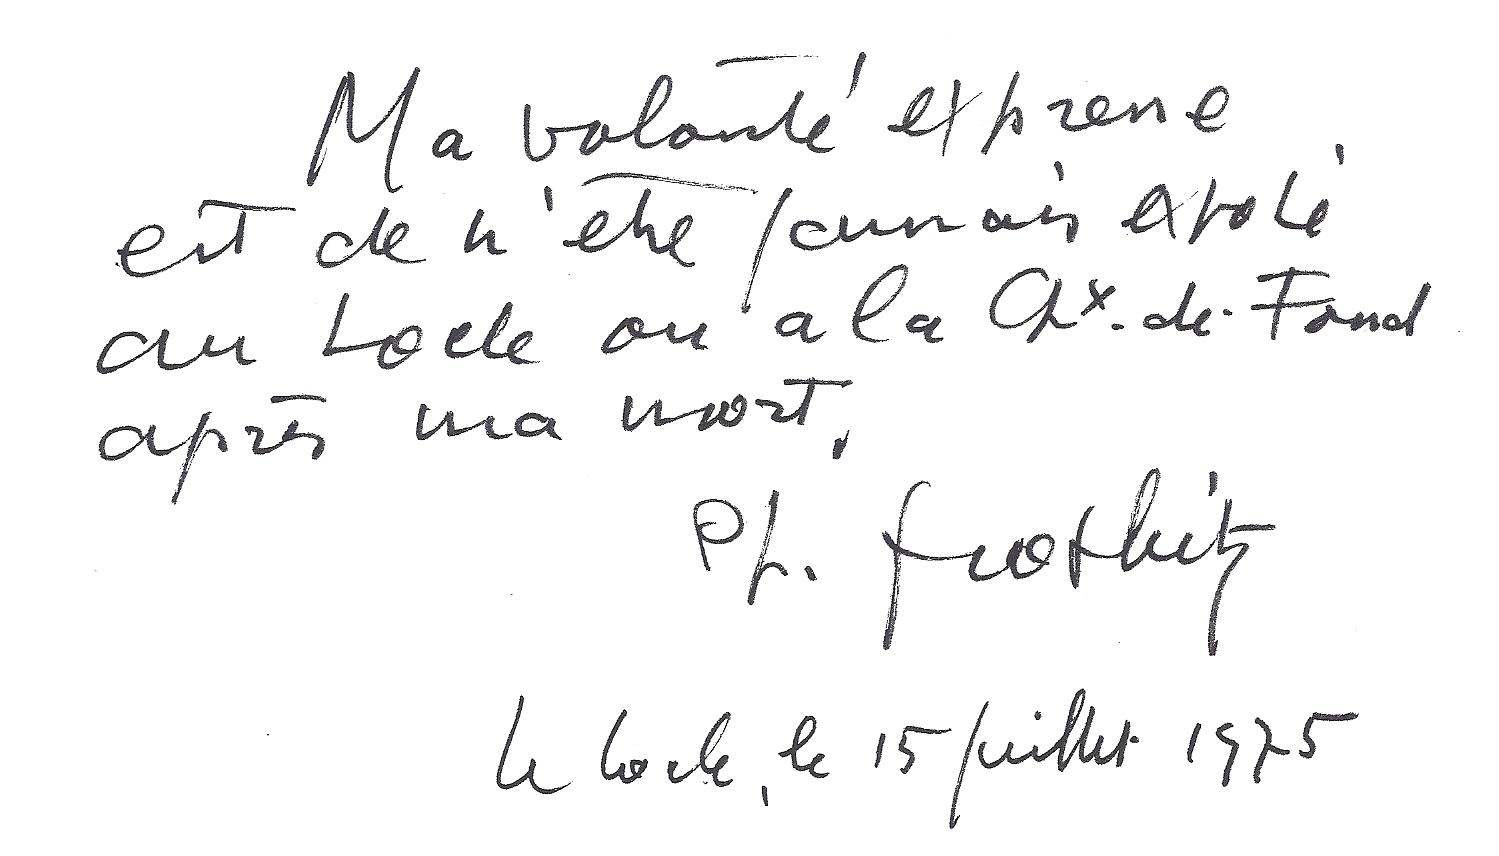 Ma volonté expresse
est de n'être jamais exposé
au Locle ou a la Chx.-de-Fond
après ma mort.
Ph.
Le Locle, le 15 juillet 1975